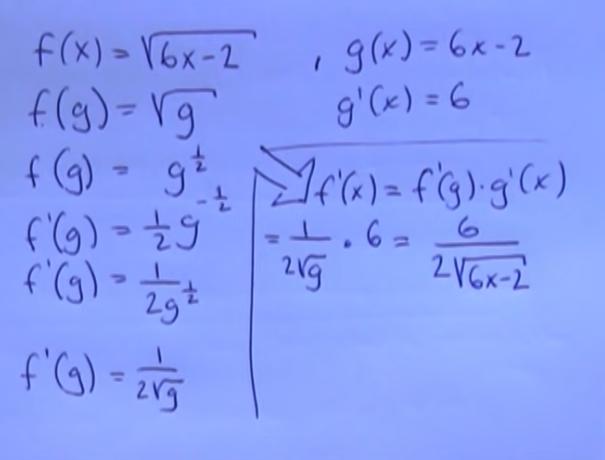 f(x) = √(6x-2) , g(x) = 6x-2
f(g) = √g g'(x) = 6
f(g) = g^(1/2)
f'(g) = 1/2 g^(-1/2)
f'(g) = 1/(2g^(1/2))
f'(g) = 1/(2√g)
f'(x) = f'(g)·g'(x)
= 1/(2√g) · 6 = 6/(2√(6x-2))